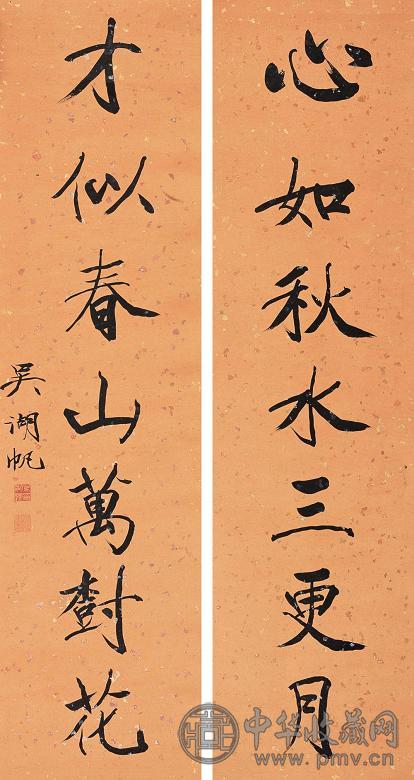 心如秋水三更月
才似春山萬樹花
吳湖帆
中华收藏网
www.pmv.cn